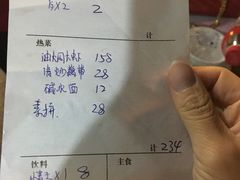 与X2 2
计
热菜
油焖大虾 158
清炒藕带 28
碱水面 12
素拼 28
计 234
饮料 主食
X1 8